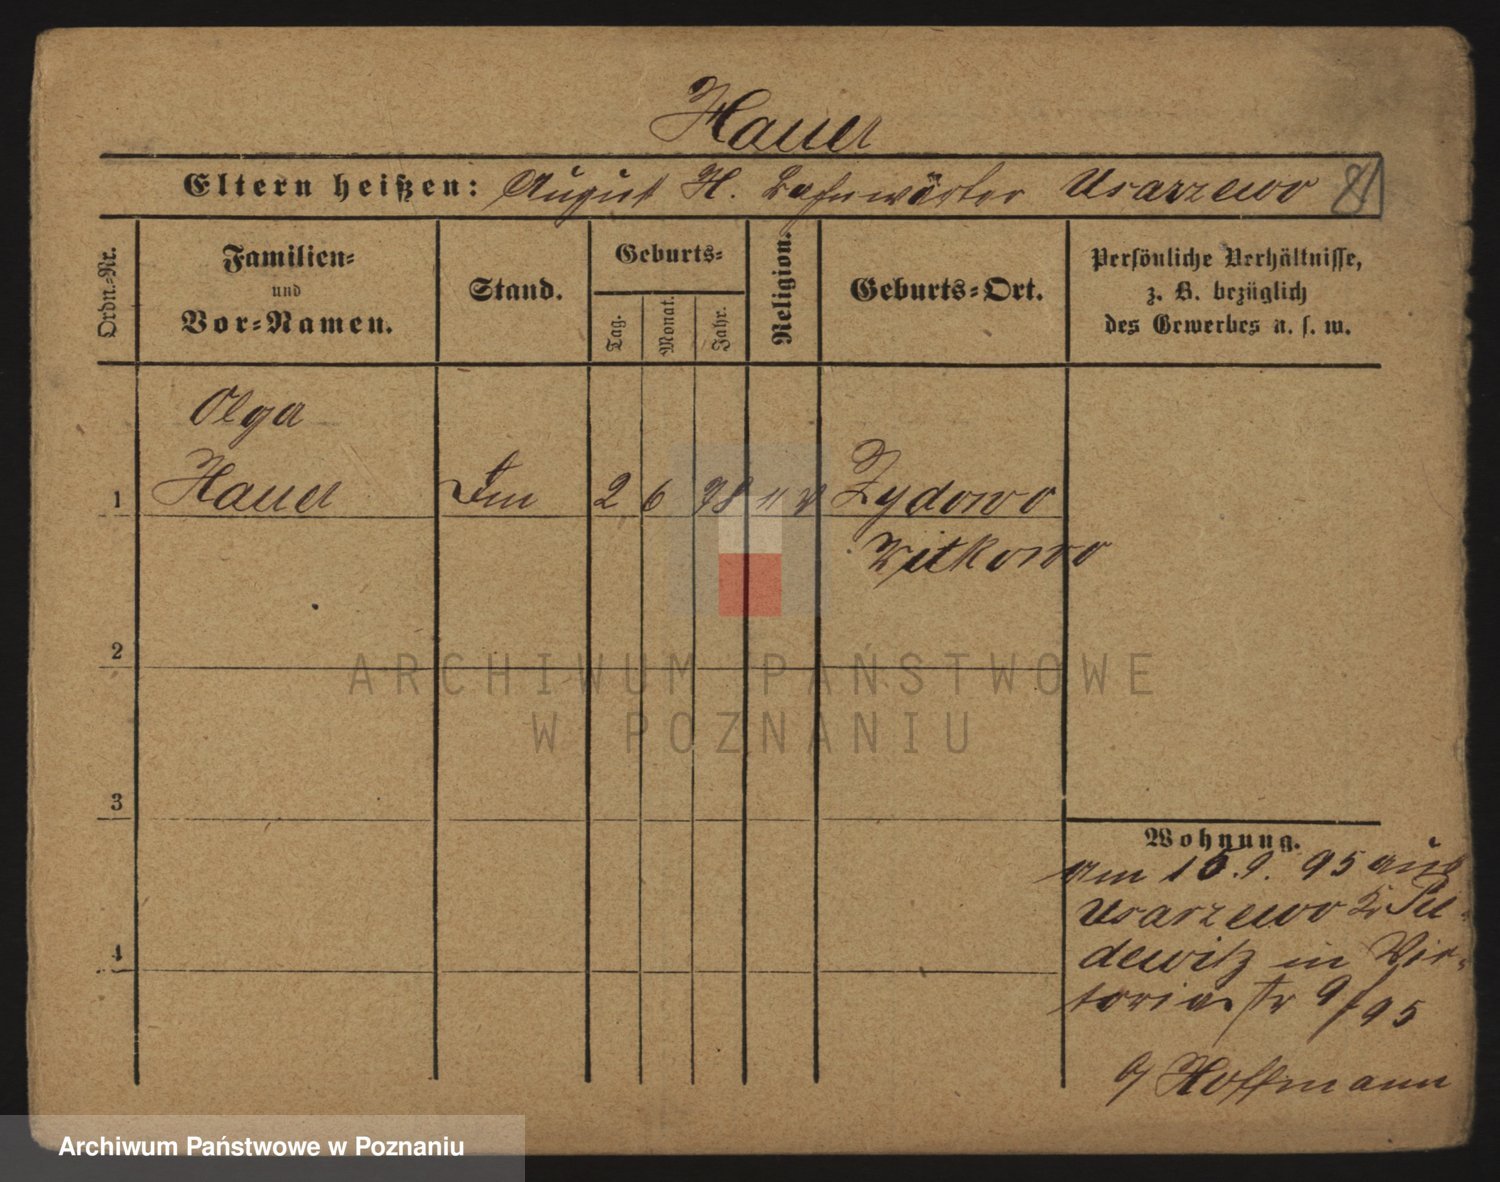 Hauer
Eltern heißen: August H. Bahnwärter Usarzewo 81
Ordn.=Nr.
Familien=
und
Vor=Namen.
Stand.
Geburts=
Tag.
Monat.
Jahr.
Religion.
Geburts=Ort.
Persönliche Verhältnisse,
z. B. bezüglich
des Gewerbes u. s. w.
Olga
1 Hauer 2 6 78 Zydowo
Witkowo
2
3
4
Wohnung.
am 15.9.95 aus
Usarzewo Kr Pu=
dewitz in Vic=
toriastr 9/95
b/ Hoffmann
ARCHIWUM PAŃSTWOWE
W POZNANIU
Archiwum Państwowe w Poznaniu